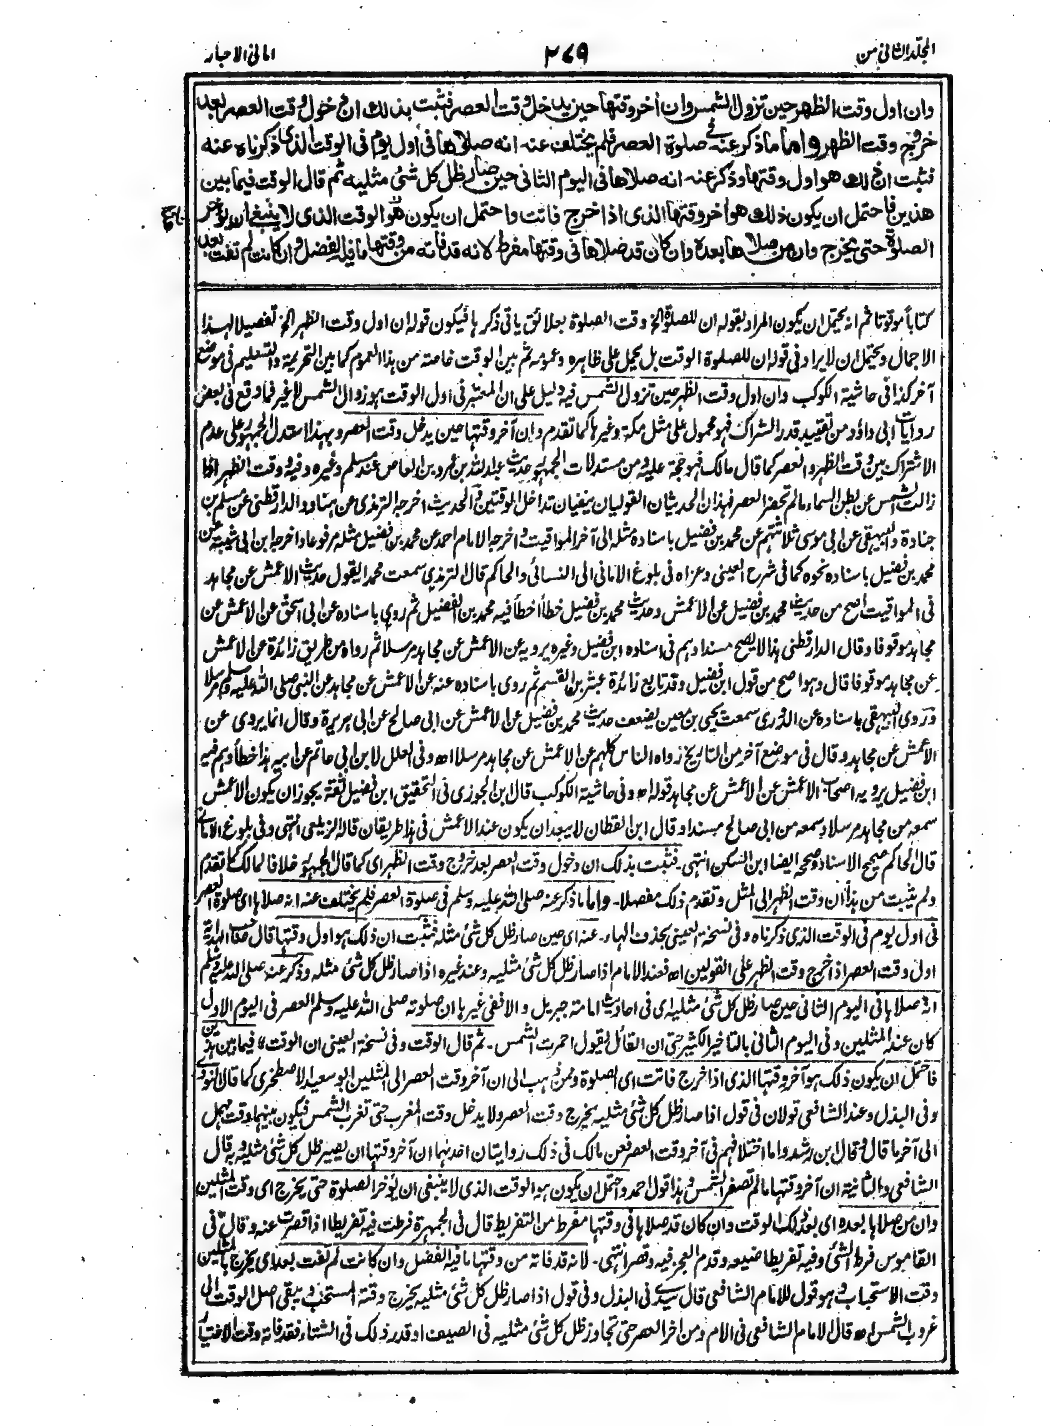 المجلد الثانى من
٢٦٩
امانى الاحبار
وان اول وقت الظهر حين تزول الشمس وان اخر وقتها حين يدخل وقت العصر فثبت بذلك ان دخول وقت العصر بعد
خروج وقت الظهر واما ما ذكر عنه فى صلوة العصر فلم يختلف عنه انه صلاها فى اول يوم فى الوقت الذى ذكرناه عنه
فثبت ان ذلك هو اول وقتها وذكر عنه انه صلاها فى اليوم الثانى حين صار ظل كل شئ مثليه ثم قال الوقت فيما بين
هذين فاحتمل ان يكون ذلك هو اخر وقتها الذى اذا خرج فاتت واحتمل ان يكون هو الوقت الذى لا ينبغى ان يؤخر
الصلوة حتى يخرج وان من صلاها بعده وان كان قد صلاها فى وقتها مفرط لانه قد فاته من وقتها ما فيه الفضل وان كانت لم تفت بعد
كتابا موقوتا ثم انه يحتمل ان يكون المراد بقوله ان للصلوة الخ وقت الصلوة بعلائق ياتى ذكرها فيكون قوله ان اول وقت الظهر الخ تفصيلا لهذا
الاجمال ويحتمل ان لا يراد فى قوله ان للصلوة الوقت بل يحمل على ظاهره وعمومه ثم بين الوقت خاصة من هذا العموم كما بين التحريمة والتسليم فى موضع
آخر كذا فى حاشية الكوكب وان اول وقت الظهر حين تزول الشمس فيه دليل على ان المعتبر فى اول الوقت هو زوال الشمس لا غير فما وقع فى بعض
روايات ابى داؤد من تقييد قدر الشراك فهو محمول على مثل مكة وغيرها كما تقدم وان آخر وقتها حين يدخل وقت العصر وبهذا استدل الجمهور على عدم
الاشتراك بين وقت الظهر والعصر كما قال مالك فهو حجة عليه ومن مستدلات الجمهور حديث عبد الله بن عمرو بن العاص عند مسلم وغيره وفيه وقت الظهر اذا
زالت الشمس عن بطن السماء ما لم تحضر العصر فهذان الحديثان القوليان ينفيان تداخل الوقتين والحديث اخرجه الترمذى عن هناد والدارقطنى عن سلم بن
جنادة والبيهقى عن ابى موسى ثلاثتهم عن محمد بن فضيل باسناده مثله الى آخر المواقيت واخرجه الامام احمد عن محمد بن فضيل مثله مرفوعا واخرجه ابن ابى شيبة عن
محمد بن فضيل باسناده نحوه كما فى شرح العينى وعزاه فى بلوغ الامانى الى النسائى والحاكم قال الترمذى سمعت محمدا يقول حديث الاعمش عن مجاهد
فى المواقيت اصح من حديث محمد بن فضيل عن الاعمش وحديث محمد بن فضيل خطأ اخطأ فيه محمد بن الفضيل ثم روى باسناده عن ابى اسحق عن الاعمش عن
مجاهد موقوفا وقال الدارقطنى هذا لا يصح مسندا وهم فى اسناده ابن فضيل وغيره يرويه عن الاعمش عن مجاهد مرسلا ثم رواه من طريق زائدة عن الاعمش
عن مجاهد موقوفا قال وهو اصح من قول ابن فضيل وقد تابع زائدة عبثر بن القسم ثم روى باسناده عنه عن الاعمش عن مجاهد عن النبى صلى الله عليه وسلم مرسلا
وروى البيهقى باسناده عن الدورى سمعت يحيى بن معين يضعف حديث محمد بن فضيل عن الاعمش عن ابى صالح عن ابى هريرة وقال انما يروى عن
الاعمش عن مجاهد وقال فى موضع آخر من التاريخ رواه الناس كلهم عن الاعمش عن مجاهد مرسلا اھ وفى العلل لابن ابى حاتم عن ابيه هذا خطأ وهم فيه
ابن فضيل يرويه اصحاب الاعمش عن الاعمش عن مجاهد قوله اھ وفى حاشية الكوكب قال ابن الجوزى فى التحقيق ابن فضيل ثقة يجوز ان يكون الاعمش
سمعه من مجاهد مرسلا وسمعه من ابى صالح مسندا وقال ابن القطان لا يبعد ان يكون عند الاعمش فى هذا طريقان قاله الزيلعى انتهى وفى بلوغ الامانى
قال الحاكم صحيح الاسناد وصححه ايضا ابن السكن انتهى ـ فثبت بذلك ان دخول وقت العصر بعد خروج وقت الظهر اى كما قال الجمهور خلافا لمالك كما تقدم
ولم يثبت من هذا ان وقت الظهر الى المثل وتقدم ذلك مفصلا ـ واما ما ذكر عنه صلى الله عليه وسلم فى صلوة العصر فلم يختلف عنه انه صلاها اى صلوة العصر
فى اول يوم فى الوقت الذى ذكرناه وفى نسخة العينى بحذف الهاء ـ عنه اى حين صار ظل كل شئ مثله فثبت ان ذلك هو اول وقتها قال صاحب الهداية
اول وقت العصر اذا خرج وقت الظهر على القولين اھ فعند الامام اذا صار ظل كل شئ مثليه وعند غيره اذا صار ظل كل شئ مثله وذكر عنه صلى الله عليه وسلم
انه صلاها فى اليوم الثانى حين صار ظل كل شئ مثليه اى فى احاديث امامة جبريل والا ففى غيرها ان صلوته صلى الله عليه وسلم العصر فى اليوم الاول
كان عند المثلين وفى اليوم الثانى بالتاخير الكثير حتى ان القائل يقول احمرت الشمس ـ ثم قال الوقت وفى نسخة العينى ان الوقت ،، فيما بين هذين
فاحتمل ان يكون ذلك هو آخر وقتها الذى اذا خرج فاتت اى الصلوة وممن ذهب الى ان آخر وقت العصر الى المثلين ابو سعيد الاصطخرى كما قاله النووى
وفى البذل وعند الشافعى قولان فى قول اذا صار ظل كل شئ مثليه يخرج وقت العصر ولا يدخل وقت المغرب حتى تغرب الشمس فيكون بينهما وقت مهمل
الى آخر ما قال وقال ابن رشد واما اختلافهم فى آخر وقت العصر فعن مالك فى ذلك روايتان احدهما ان آخر وقتها ان يصير ظل كل شئ مثليه وبه قال
الشافعى والثانية ان آخر وقتها ما لم تصفر الشمس وهذا قول احمد واحتمل ان يكون هو الوقت الذى لا ينبغى ان يؤخر الصلوة حتى يخرج اى وقت المثلين
وان من صلاها بعده اى بعد ذلك الوقت وان كان قد صلاها فى وقتها مفرط من التفريط قال فى الجمهرة فرطت فيه تفريطا اذا قصرت عنه وقال فى
القاموس فرط الشئ وفيه تفريطا ضيعه وقدم العجز فيه وقصر انتهى ـ لانه قد فاته من وقتها ما فيه الفضل وان كانت لم تفت بعد اى يخرج بالمثلين
وقت الاستحباب وهو قول للامام الشافعى قال سيدى فى البذل وفى قول اذا صار ظل كل شئ مثليه يخرج وقته المستحب ويبقى اصل الوقت الى
غروب الشمس اھ قال الامام الشافعى فى الام ومن اخر العصر حتى تجاوز ظل كل شئ مثليه فى الصيف او قدر ذلك فى الشتاء فقد فاته وقت الاختيار